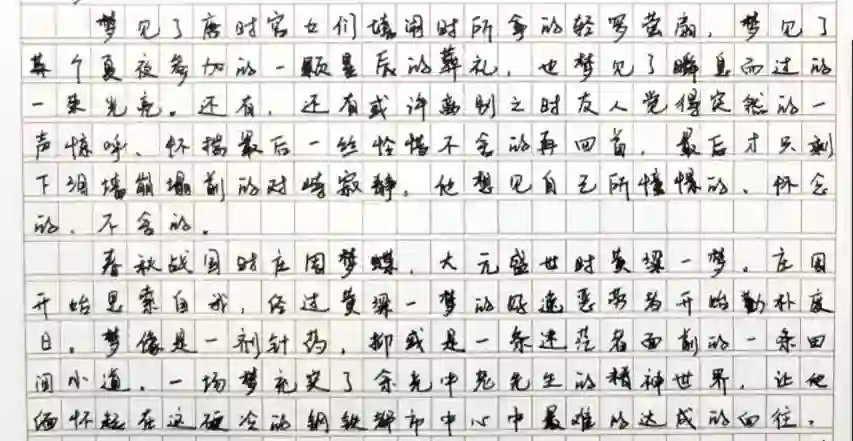 梦见了唐时宫女们嬉闹时所拿的轻罗萤扇，梦见了
某个夏夜参加的一颗星辰的葬礼，也梦见了瞬息而过的
一束光亮。还有，还有或许离别之时友人觉得突然的一
声惊呼、怀揣最后一丝怜惜不舍的再回首，最后才只剩
下泪墙崩塌前的对峙寂静，他想见自己所憧憬的、怀念
的、不舍的。
春秋战国时庄周梦蝶，大元盛世时黄粱一梦。庄周
开始思索自我，经过黄粱一梦的好逸恶劳者开始勤朴度
日。梦像是一剂针药，抑或是一条迷茫者面前的一条田
间小道。一场梦充实了余光中老先生的精神世界，让他
缅怀起在这硬冷的钢铁都市中心中最难的达成的回往。